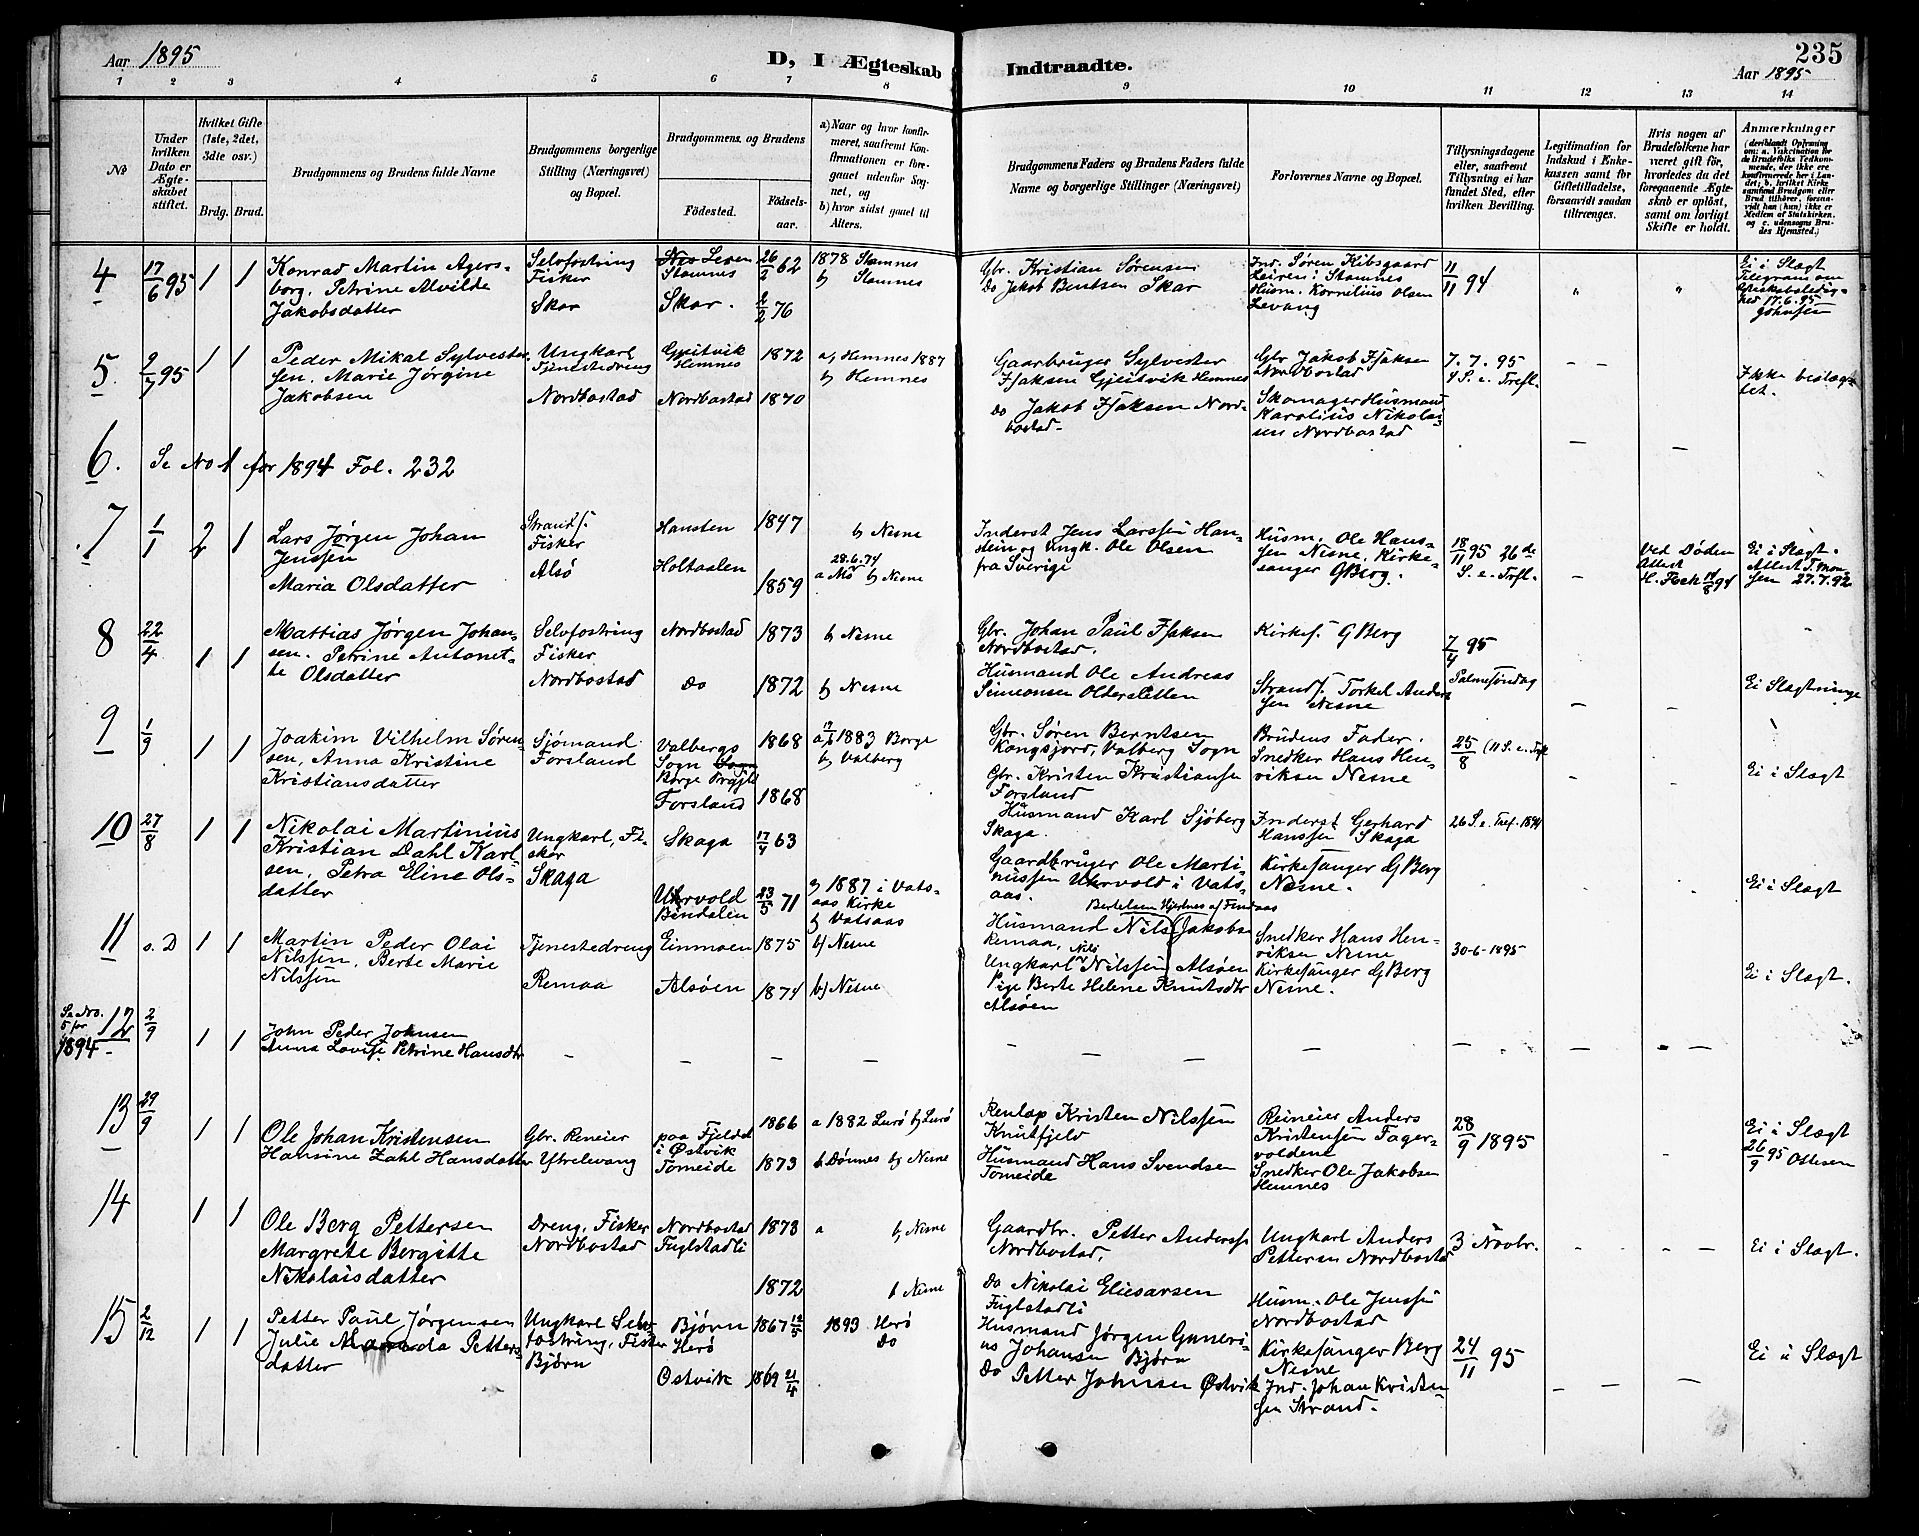 Aar 1895
D, I Ægteskab Indtraadte.
235
Aar 1895
1 2 3 4 5 6 7 8 9 10 11 12 13 14
No
Under hvilken Dato er Ægteskabet stiftet.
Hvilket Gifte (1ste, 2det, 3die osv.)
Brdg. Brud.
Brudgommens og Brudens fulde Navne
Brudgommens borgerlige Stilling (Næringsvei) og Bopæl.
Brudgommens og Brudens
Fødested.
Fødsels-aar.
a) Naar og hvor konfirmeret, saafremt Konfirmationen er foregaaet udenfor Sognet, og
b) hvor sidst gaaet til Alters.
Brudgommens Faders og Brudens Faders fulde Navne og borgerlige Stillinger (Næringsvei)
Forlovernes Navne og Bopæl.
Tillysningsdagene eller, saafremt Tillysning ei har fundet Sted, efter hvilken Bevilling.
Legitimation for Indskud i Enkekassen samt for Giftetilladelse, forsaavidt saadan tiltrænges.
Hvis nogen af Brudefolkene har været gift før, hvorledes da det foregaaende Ægteskab er opløst, samt om lovligt Skifte er holdt.
Anmærkninger
4 17/6 95 1 1
Konrad Martin Agersborg, Petrine Alvilde Jakobsdatter
Selvfostring Fisker Skar
Stamnes 26/2 62
Skar. 2/2 76
1878 Stamnes
b Stamnes
Gbr. Kristian Sørensen
Do Jakob Bentsen Skar
Ind. Søren Kibsgaard
Leiren i Stamnes
Husm. Kornelius Olsen
Levang
11/11 94
Ei i Slægt
Telegram om
17.6.95
Johnsen
5. 9/7 95 1 1
Peder Mikal Sylvestersen. Marie Jørgine Jakobsen
Ungkarl Tjenestedreng Nordbostad
Gjeitvik Hemnes 1872
Nordbostad 1870
a) Hemnes 1887
b) Hemnes
Gaarbruger Sylvester Isaksen Gjeitvik Hemnes
Do Jakob Isaksen Nordbostad
Gbr Jakob Isaksen Nordbostad
Skomager Husmand Karolius Nikolaisen Nordbostad
7. 7. 95
4 S. e. Trefl.
Ikke beslægtet.
6. Se No 1 for 1894 Fol. 232
7 1/1 2 1
Lars Jørgen Johan Jenssen
Maria Olsdatter
Strands. Fisker Alsø
Hansten 1847
Holtaalen 1859
b Nesne
28.6.74
a Mo b) Nesne
Inderst Jens Larssen Hanstein og Ungk. Ole Olsen fra Sverige
Husm. Ole Hanssen Nesne, Kirkesanger GBerg.
18/11 95 26de S. e. Trfl.
Ved Døden
Attest
H. Fock 17/8 94
Ei i Slægt.
Attest T. Monsen 27.7.92
8 22/4 1 1
Mattias Jørgen Johansen. Petrine Antonette Olsdatter
Selvfostring Fisker Nordbostad
Nordbostad 1873
Do 1872
b Nesne
b Nesne
Gbr. Johan Paul Isaksen Nordbostad.
Husmand Ole Andreas Simeonsen Oldersletten
Kirkes. G Berg
Strands. Torkel Anderssen Nesne
7/4 95
Palmesøndag
Ei Slægtninge
9 1/9 1 1
Joakim Vilhelm Sørensen, Anna Kristine Kristiansdatter
Sjømand Forsland
Valbergs Sogn Sogn Borge Prgjld 1868
Forsland 1868
a 17/6 1883 Borge
b) Valberg
Gbr. Søren Berntsen Kongsjord, Valberg Sogn
Gbr. Kristen Kristiansen Forsland
Brudens Fader.
Snedker Hans Henriksen Nesne
25/8 (11 S. e. Tref
Ei i Slægt
10 27/8 1 1
Nikolai Martinius Kristian Dahl Karlsen, Petra Eline Olsdatter
Ungkarl, Fisker Skaga
Skaga 17/4 63
Bindalen 23/5 71
1887 i Vatsaas Kirke
b Vatsaas
Husmand Karl Sjøberg Skaga.
Gaardbruger Ole Martinussen Uhrvold i Vatsaas.
Inderst Gerhard Hanssen Skaga
Kirkesanger G Berg Nesne.
26 S. e. Tref. 1894
Ei i Slægt
11 s. D 1 1
Martin Peder Olai Nilssen, Berte Marie Nilssen
Tjenestedreng Remaa
Einmoen 1875
Alsøen 1874
b) Nesne
b) Nesne
Husmand Nils Jakobs Remaa,
Ungkarl Nils Nilssen Alsøen
Pige Berte Helene Knutsdtr Alsøen
Snedker Hans Henriksen Nesne
Kirkesanger G Berg Nesne.
30-6-1895
Ei i Slægt.
Se No. 5 for 1894
12 2/9 1 1
John Peder Johnsen
Anna Lovise Petrine Hansdtr
13 29/9 1 1
Ole Johan Kristensen
Hansine Zahl Hansdatter
Gbr. Reneier
Ytrelevang
paa Fjeldet i Østvik 1866
Tomeide 1873
a 1882 Lurø b) Lurø
b Dønnes b) Nesne
Renlap Kristen Nilssen Knutfjeld
Husmand Hans Svendsen Tomeide
Reineier Anders Kristensen Fagervoldene
Snedker Ole Jakobsen Hemnes
28/9 1895
Ei i Slægt
26/9 95 Ottesen
14 1 1
Ole Berg Pettersen
Margrete Bergitte Nikolaisdatter
Dreng, Fisker Nordbostad
Nordbostad 1873
Fuglstadli 1872
a b) Nesne
b Nesne
Gaardbr. Petter Anderss Nordbostad,
Do Nikolai Eliesarsen Fuglstadli
Ungkarl Anders Pettersen Nordbostad
Husm. Ole Jenssen Nordbostad
3 Novbr.
Ei i Slægt.
15 2/12 1 1
Petter Paul Jørgensen
Julie Amanda Pettersdatter
Ungkarl Selvfostring, Fisker Bjørn
Bjørn Herø 1867 12/5
Østvik 1869 21/4
1893 Herø
Do
Husmand Jørgen Gunerius Johansen Bjørn
Do Petter Johnsen Østvik
Kirkesanger Berg Nesne
Ind. Johan Kristensen Strand.
24/11 95
Ei i Slægt